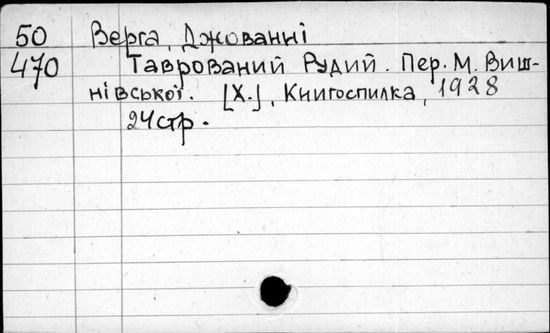 50 Верга, Джованні
470 Таврований Рудий. Пер. М. Виш-
нівської. [Х.], Книгоспилка, 1928
24 стр.